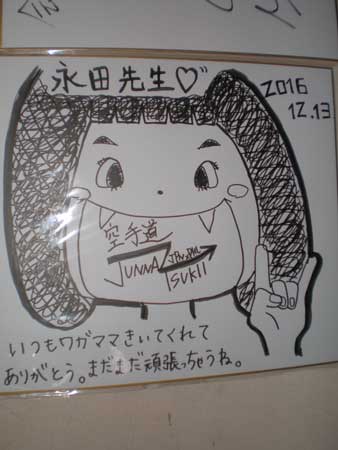 永田先生♡
2016
12.13
空手道
JUNNA
TSUKII
いつもワガママきいてくれて
ありがとう。まだまだ頑張っちゃうね。